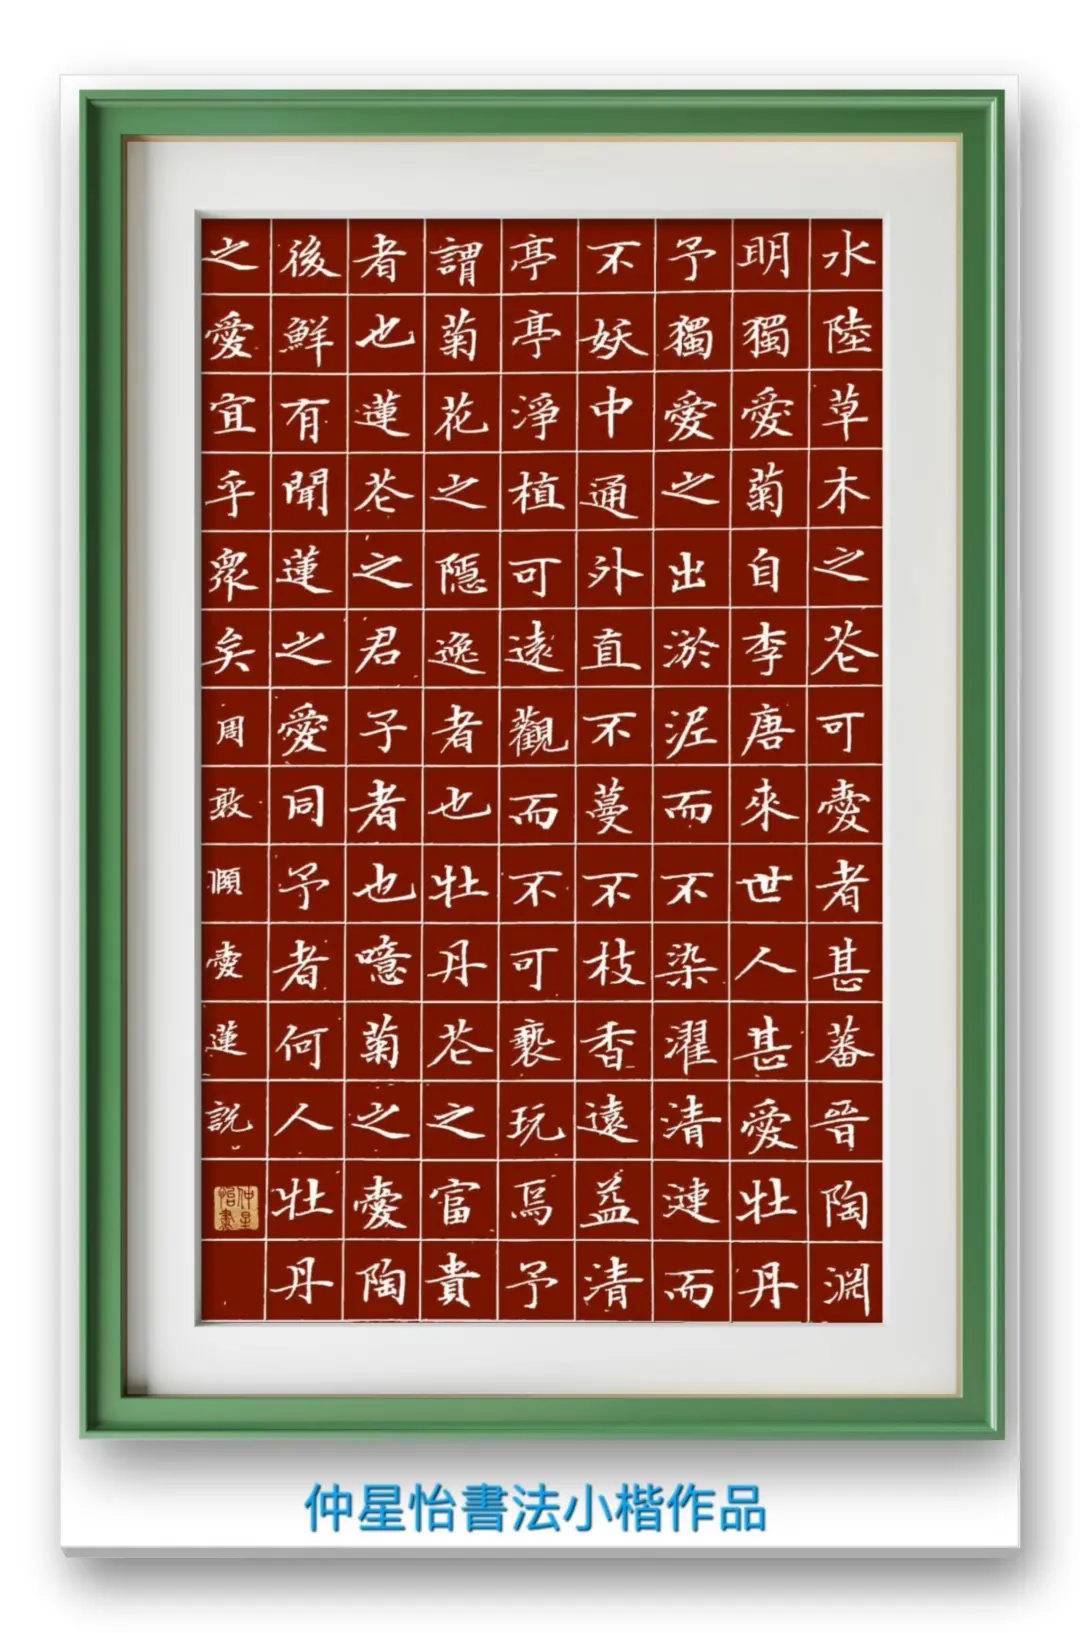 水陸草木之花可愛者甚蕃晉陶淵
明獨愛菊自李唐來世人甚愛牡丹
予獨愛之出淤泥而不染濯清漣而
不妖中通外直不蔓不枝香遠益清
亭亭淨植可遠觀而不可褻玩焉予
謂菊花之隱逸者也牡丹花之富貴
者也蓮花之君子者也噫菊之愛陶
後鮮有聞蓮之愛同予者何人牡丹
之愛宜乎衆矣周敦頤愛蓮說
仲星怡書
仲星怡書法小楷作品